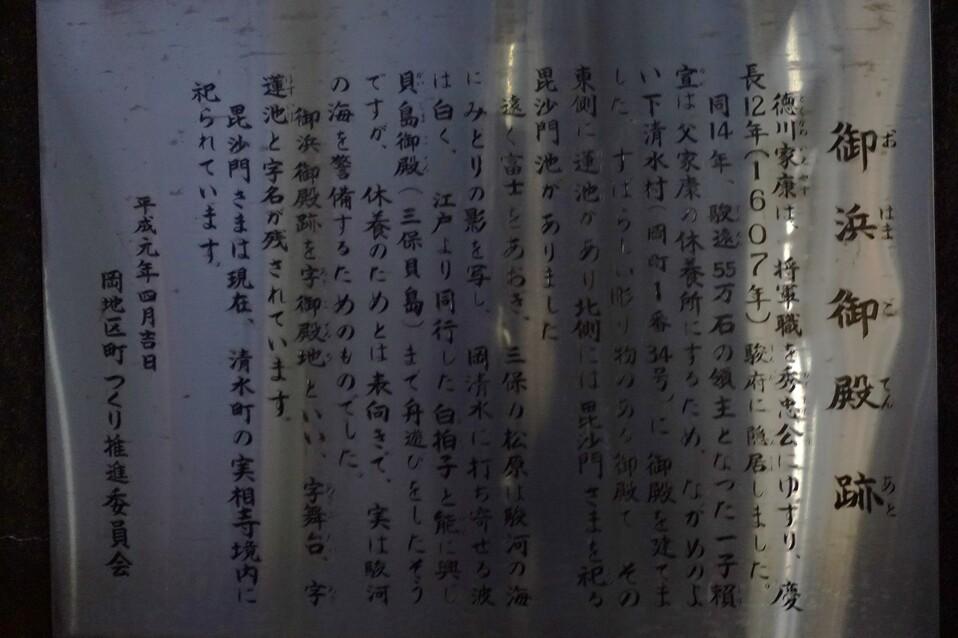 御浜御殿跡
おはまごてんあと
徳川家康は、将軍職を秀忠公にゆずり、慶
長12年(1607年)駿府に隠居しました。
同14年、駿遠55万石の領主となった一子頼
宣は父家康の休養所にするため、ながめのよ
い下清水村(岡町1番34号)に御殿を建てま
した。すばらしい彫り物のある御殿で その
東側に蓮池があり北側には毘沙門さまを祀る
毘沙門池がありました
遠く富士をあおぎ、三保の松原は駿河の海
にみとりの影を写し、岡清水に打ち寄せる波
は白く、江戸より同行した白拍子と能に興し
貝島御殿(三保貝島)まで舟遊びをしたそう
ですが、休養のためとは表向きで、実は駿河
の海を警備するためのものでした。
御浜御殿跡を字御殿地といい、字舞台、字
蓮池と字名が残されています。
毘沙門さまは現在、清水町の実相寺境内に
祀られています。
平成元年四月吉日
岡地区町つくり推進委員会